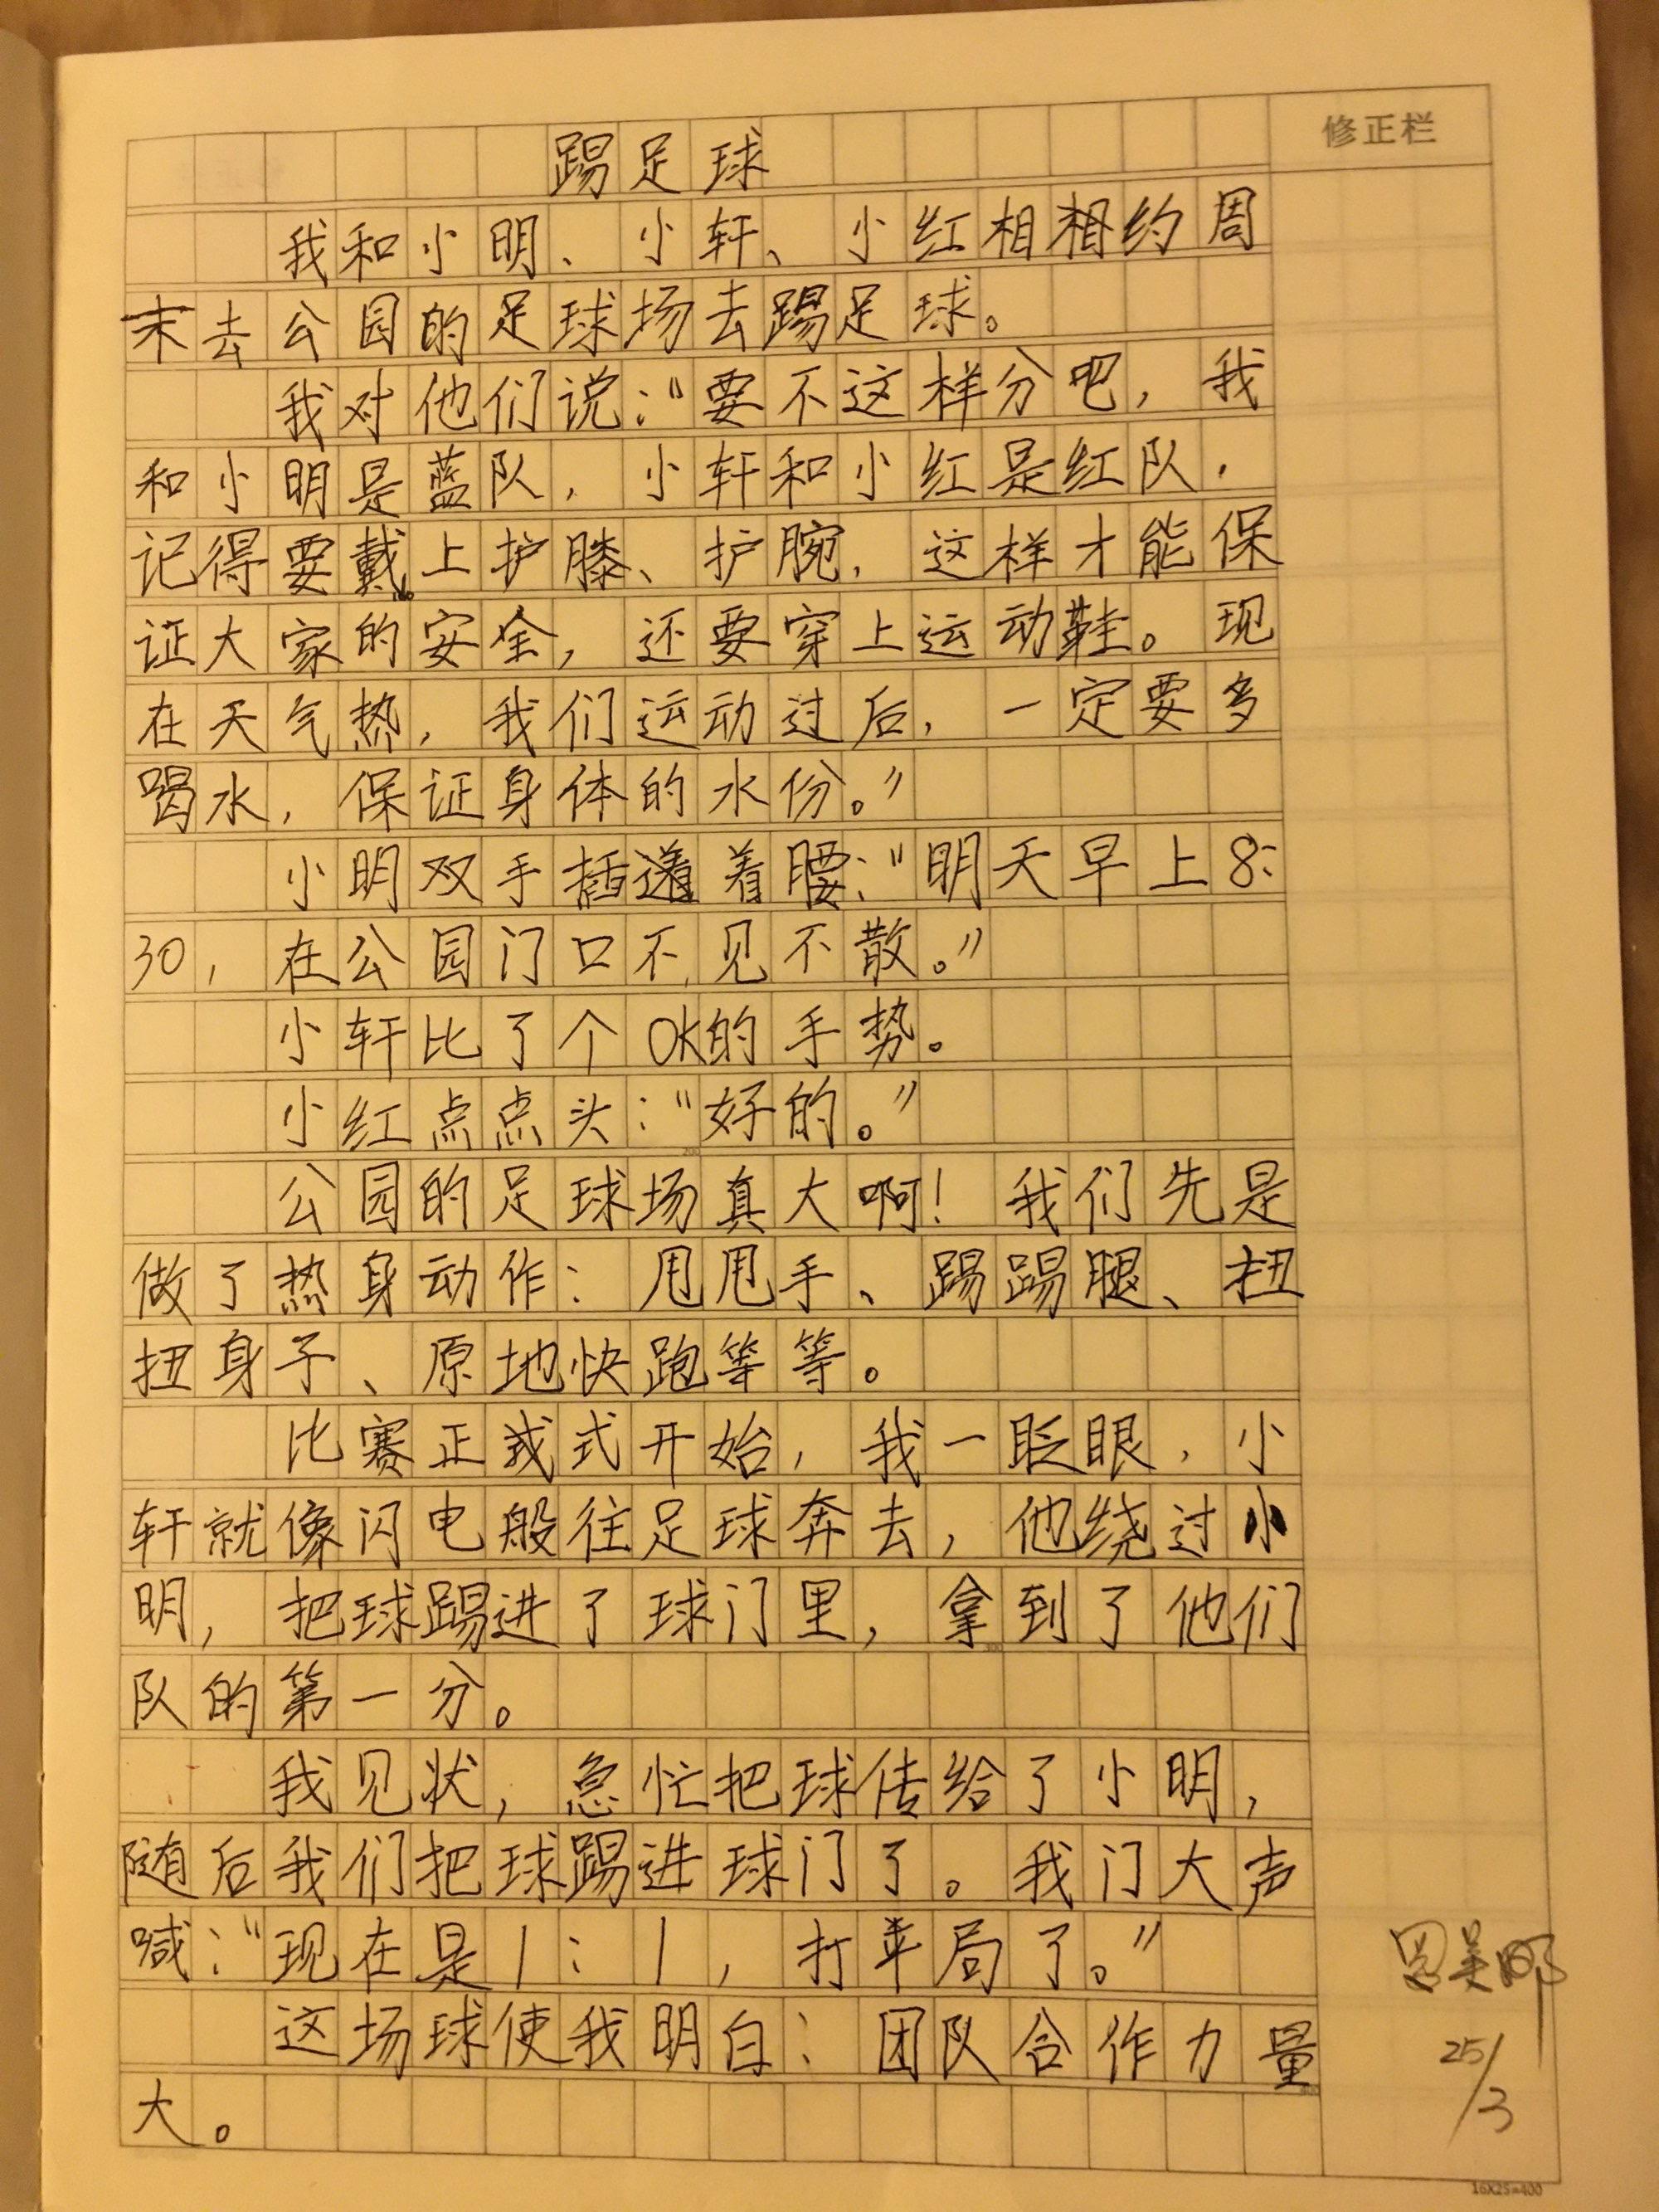 修正栏
踢足球
我和小明、小轩、小红相相约周
末去公园的足球场去踢足球。
我对他们说:“要不这样分吧,我
和小明是蓝队,小轩和小红是红队,
记得要戴上护膝、护腕,这样才能保
证大家的安全,还要穿上运动鞋。现
在天气热,我们运动过后,一定要多
喝水,保证身体的水份。”
小明双手插着着腰:“明天早上8:
30,在公园门口不见不散。”
小轩比了个OK的手势。
小红点点头:“好的。”
公园的足球场真大啊!我们先是
做了热身动作:甩甩手、踢踢腿、扭
扭身子、原地快跑等等。
比赛正式开始,我一眨眼,小
轩就像闪电般往足球奔去,他绕过小
明,把球踢进了球门里,拿到了他们
队的第一分。
我见状,急忙把球传给了小明,
随后我们把球踢进球门了。我门大声
喊:“现在是1:1,打平局了。”
这场球使我明白:团队合作力量
大。
25/3
16X25=400